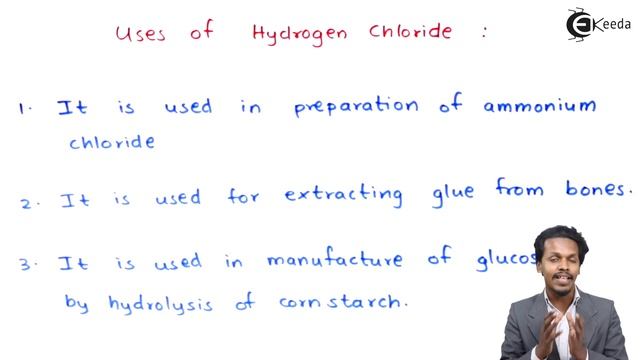 Uses of Hydrogen Chloride :
Keeda
1. It is used in preparation of ammonium
chloride
2. It is used for extracting glue from bones.
3. It is used in manufacture of
by hydrolysis of corn starch.